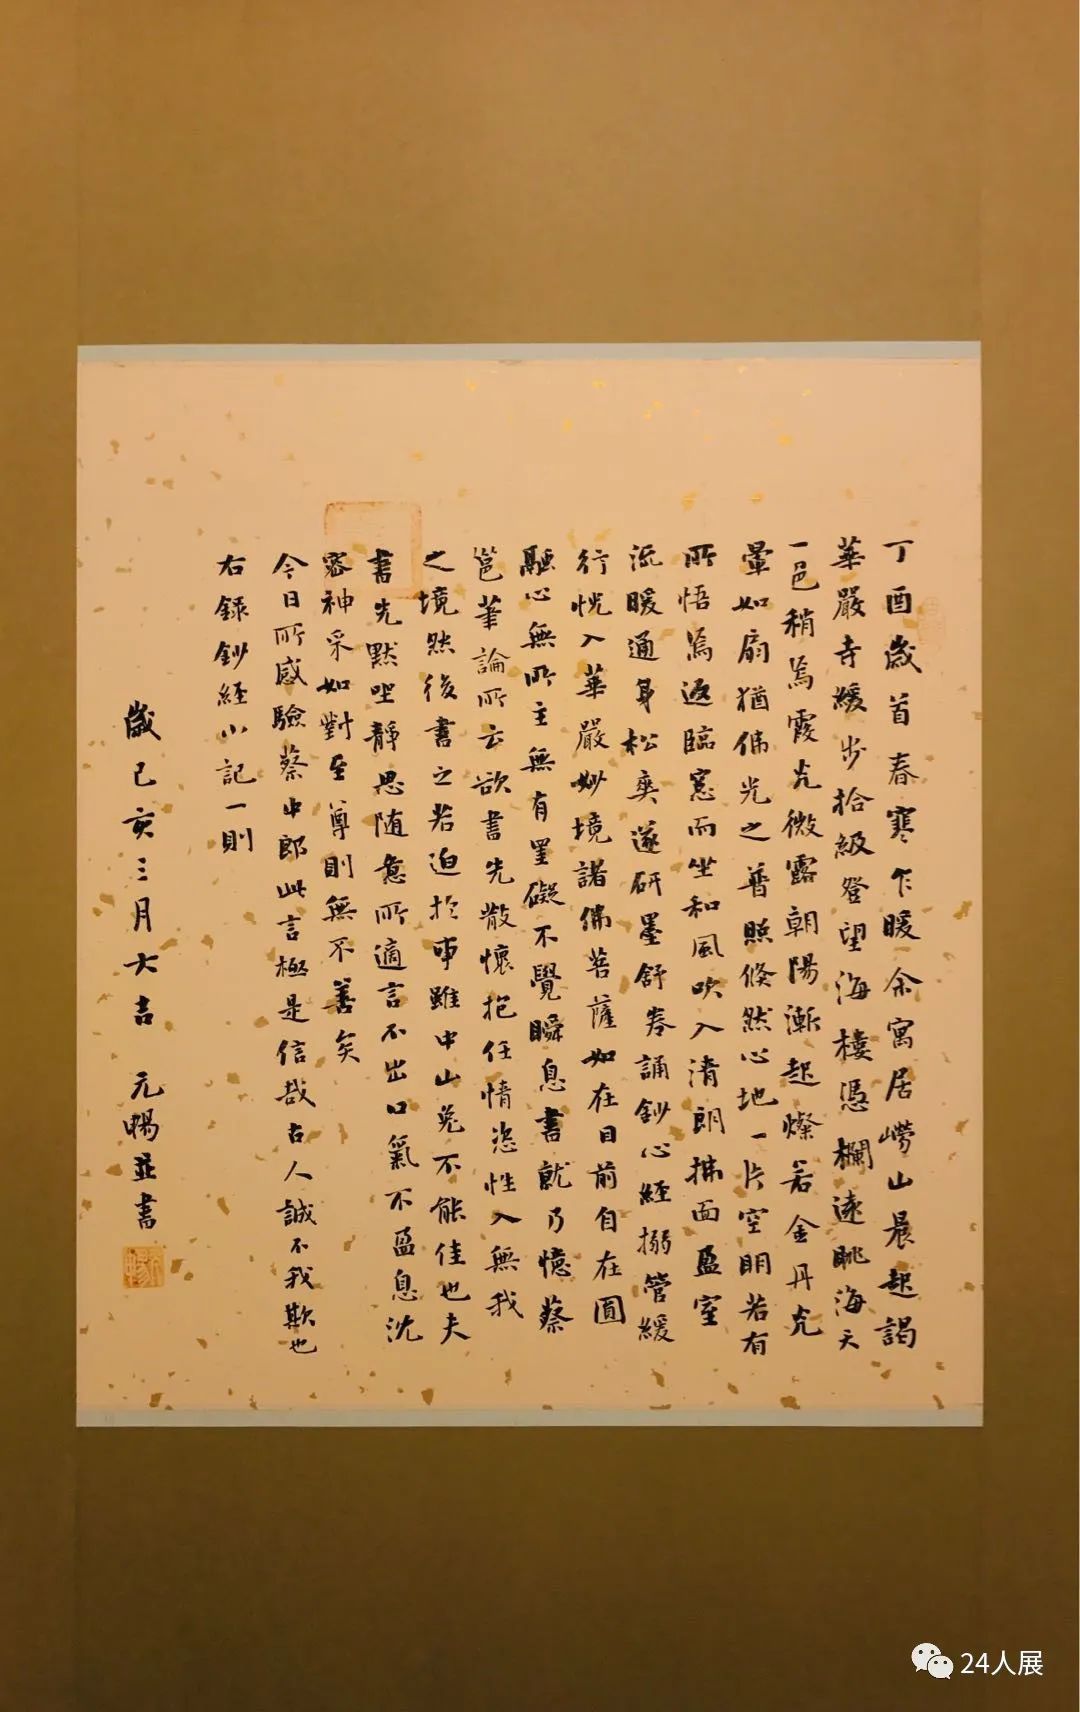 丁酉歲首春寒乍暖余寓居嶗山晨起謁
華嚴寺緩步拾級登望海樓憑欄遠眺海天
一色稍焉霞光微露朝陽漸起燦若金丹光
暈如扇猶佛光之普照倏然心地一片空明若有
所悟焉返臨窓而坐和風吹入清朗拂面盈室
流暖通身松爽遂研墨舒卷誦鈔心經搦管緩
行恍入華嚴妙境諸佛菩薩如在目前自在圓
融心無所主無有罣礙不覺瞬息書就乃憶蔡
邕筆論所云欲書先散懷抱任情恣性入無我
之境然後書之若迫於事雖中山兔不能佳也夫
書先默坐靜思随意所適言不出口氣不盈息沈
密神采如對至尊則無不善矣
今日所感驗蔡中郎此言極是信哉古人誠不我欺也
右録鈔經小記一則
歲己亥三月大吉 元暢並書
24人展